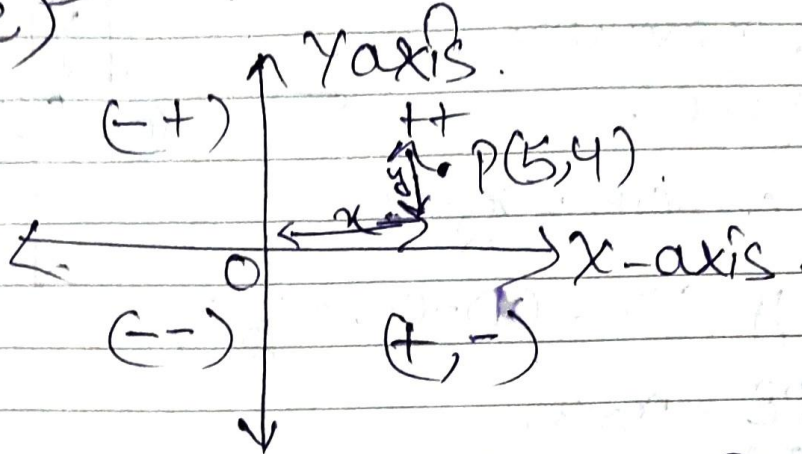 2)
Y axis.
(- +)
++
y
P(5,4).
x
X-axis.
O
(- -)
(+, -)